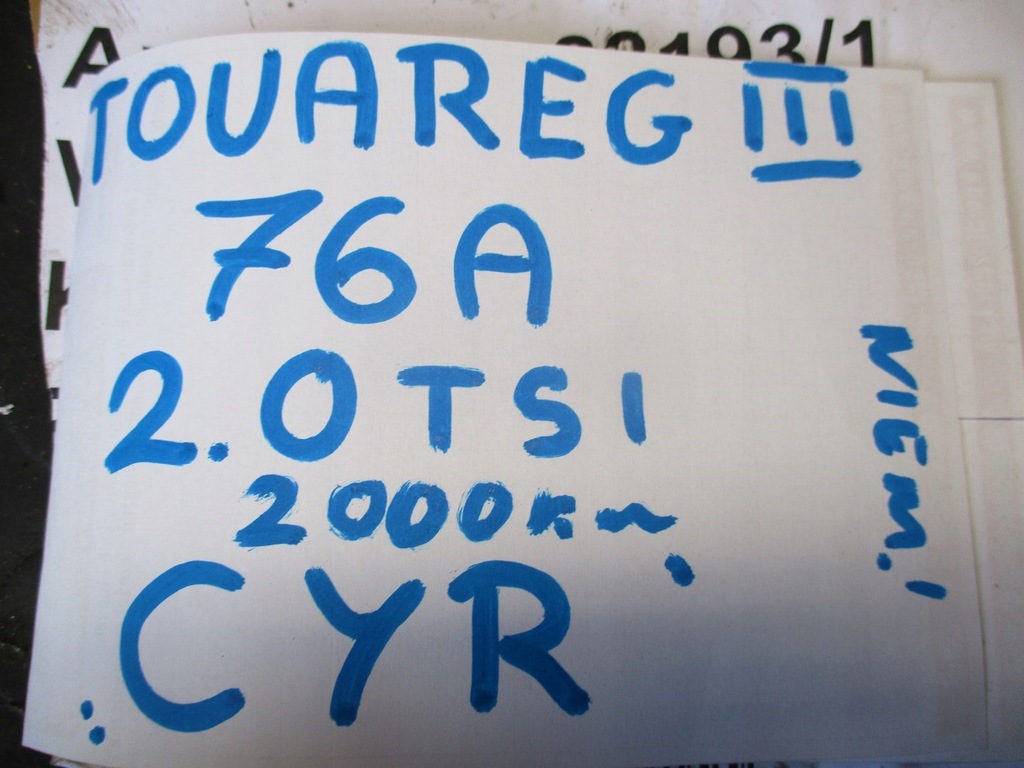 20193/1
TOUAREG III
76A
2.0 TSI
2000km.
CYR
NIEM.!